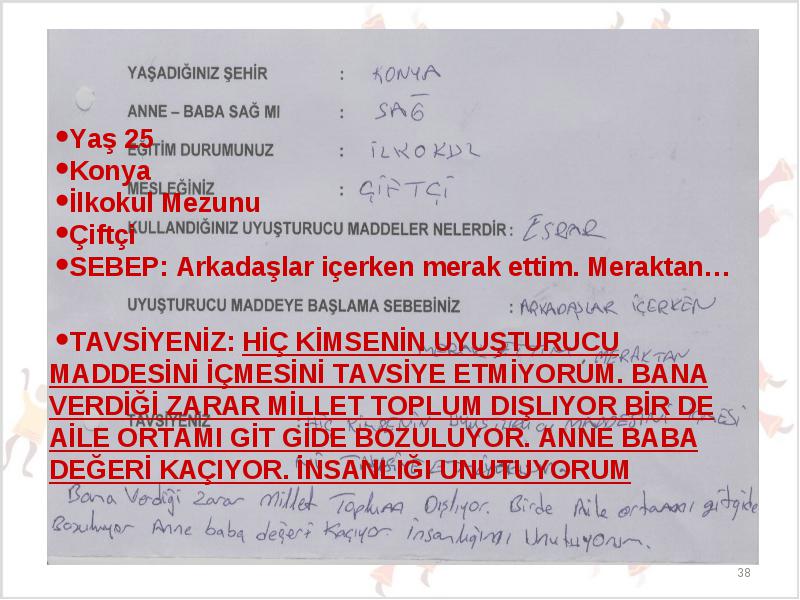 YAŞADIĞINIZ ŞEHİR : KONYA
ANNE – BABA SAĞ MI : SAĞ
•Yaş 25
EĞİTİM DURUMUNUZ : İLKOKUL
•Konya
MESLEĞİNİZ : ÇİFTÇİ
•İlkokul Mezunu
KULLANDIĞINIZ UYUŞTURUCU MADDELER NELERDİR: ESRAR
•Çiftçi
•SEBEP: Arkadaşlar içerken merak ettim. Meraktan…
UYUŞTURUCU MADDEYE BAŞLAMA SEBEBİNİZ : ARKADAŞLAR İÇERKEN
MERAK ETTİM, MERAKTAN
•TAVSİYENİZ: HİÇ KİMSENİN UYUŞTURUCU
MADDESİNİ İÇMESİNİ TAVSİYE ETMİYORUM. BANA
VERDİĞİ ZARAR MİLLET TOPLUM DIŞLIYOR BİR DE
TAVSİYENİZ :
AİLE ORTAMI GİT GİDE BOZULUYOR. ANNE BABA
DEĞERİ KAÇIYOR. İNSANLIĞI UNUTUYORUM
Bana Verdiği Zarar Millet Toplum Dışlıyor. Birde Aile ortamı gitgide
Bozuluyor Anne baba değeri Kaçıyor. İnsanlığımı Unutuyorum.
38